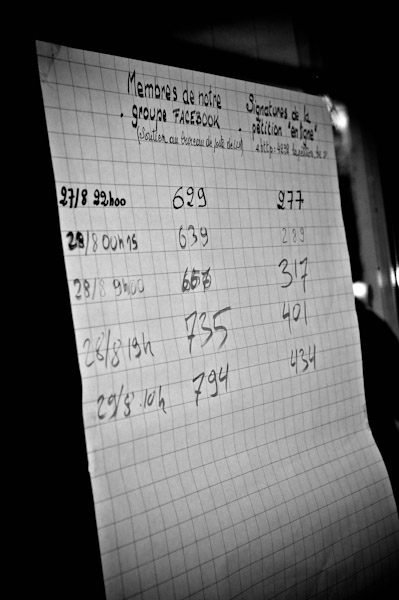 Membres de notre
. groupe FACEBOOK
(Soutien au bureau de poste de
Signatures de la
. pétition "en ligne"
27/8 22h00 629 277
28/8 00h15 639 289
28/8 9h00 317
28/8 19h 735 401
29/8 10h 794 434